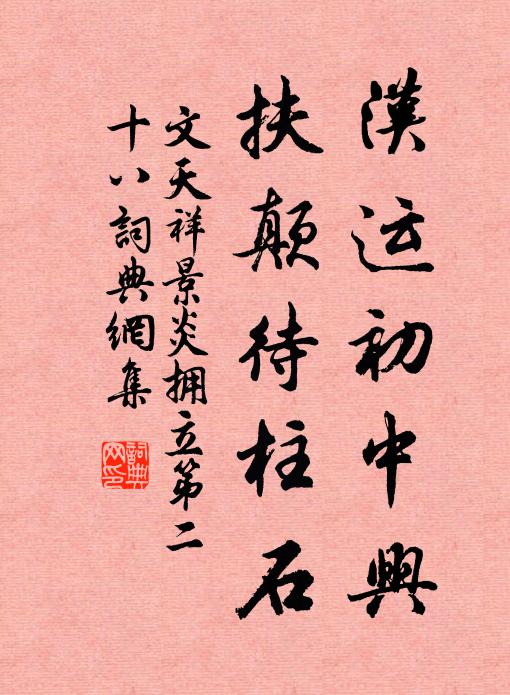 漢运初中興
扶颠待柱石
文天祥景炎拥立第二
十八詞典網集
詞典网印